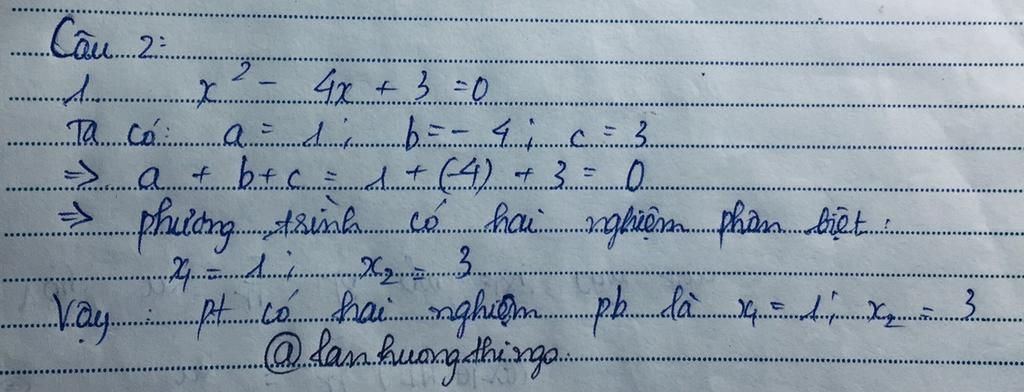 Câu 2:
1. x² - 4x + 3 = 0
Ta có: a = 1; b = - 4; c = 3
⇒ a + b + c = 1 + (-4) + 3 = 0
⇒ phương trình có hai nghiệm phân biệt:
x₁ = 1; x₂ = 3
Vậy: pt có hai nghiệm pb là x₁ = 1; x₂ = 3
@lanhuongthingo